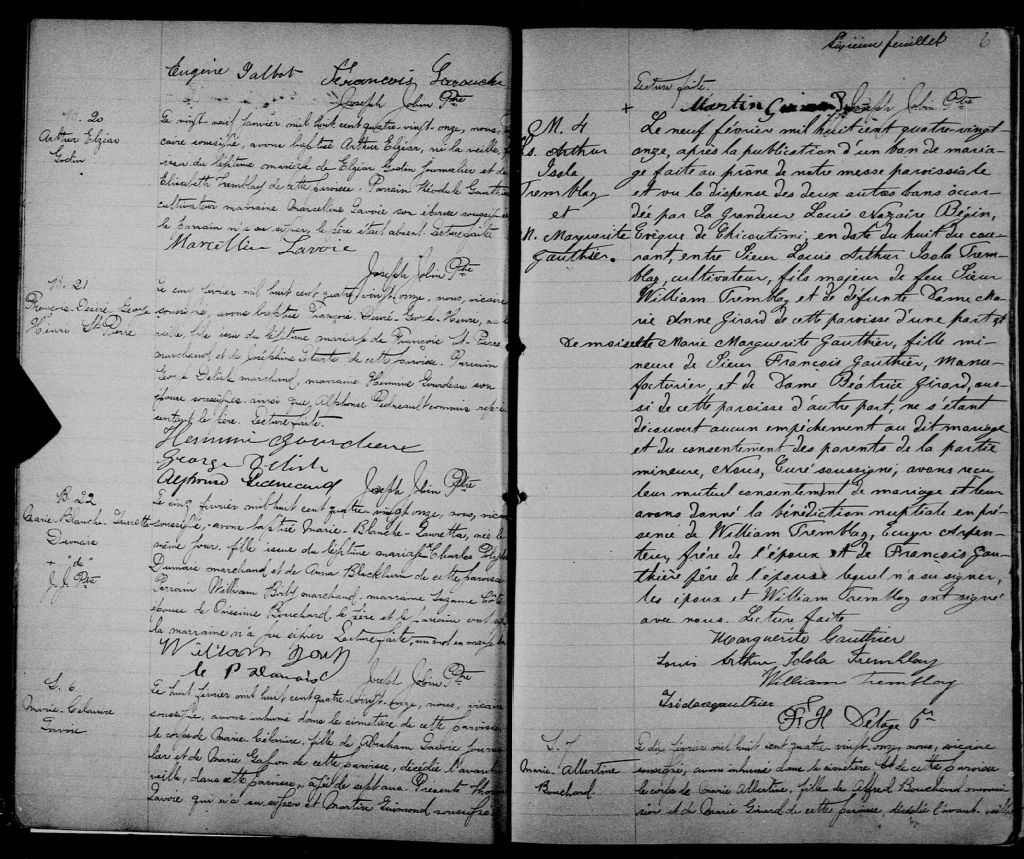 Eugène Talbot François Larouche
Joseph John Ptre
B. 20
Arthur Elzéar
Godin
Le vingt-neuf janvier mil huit cent quatre-vingt-onze, nous, vi
caire soussigné, avons baptisé Arthur Elzéar, né la veille, fils
issu du légitime mariage de Elzéar Godin journalier et de
Elisabeth Tremblay de cette paroisse. Parrain Gauthier
cultivateur marraine Marceline Lavoie son épouse soussignée
le parrain n'a su signer, le père était absent. Lecture faite
Marcelline Lavoie
Joseph John Ptre
B. 21
François-Désiré-George
Henri St Pierre
Le cinq février mil huit cent quatre-vingt-onze, nous, vicaire
soussigné, avons baptisé François-Désiré-George-Henri, né la
veille, fils issu du légitime mariage de François St-Pierre
marchand, et de Joséphine de cette paroisse. Parrain
George Delisle marchand, marraine Hermine Gourdeau son
épouse soussignés, ainsi que Alphonse commis repré
sentant le père. Lecture faite.
Hermine Gourdeau
George Delisle
Alphonse
Joseph John Ptre
B. 22
Marie-Blanche-Lauretta
Dumais
+ "d"
J. J. Ptre
Le cinq février mil huit cent quatre-vingt-onze, nous, vicaire
soussigné, avons baptisé Marie-Blanche-Lauretta, née le
même jour, fille issue du légitime mariage de Charles
Dumais marchand et de Anna Blackburn de cette paroisse
Parrain William marchand, marraine Suzanne Côté
épouse de Bouchard, le père et le parrain ont signé
la marraine n'a pu signer Lecture faite, un mot en marge bon
William
Joseph John Ptre
S. 6
Marie-Célanire
Lavoie
Le huit février mil huit cent quatre-vingt-onze, nous, vicaire
soussigné, avons inhumé dans le cimetière de cette paroisse
le corps de Marie Célanire, fille de Abraham Lavoie journa
lier et de Marie Gagnon de cette paroisse, décédée l'avant
veille, dans cette paroisse, âgée de sept ans. Présents Thomas
Lavoie qui n'a su signer et Martin Guimond soussigné
Sixième feuillet 6
Lecture faite.
+ Martin Joseph John Ptre
M. 4
Ls. Arthur
Isola
Tremblay
et
M. Marguerite
Gauthier.
Le neuf février mil huit cent quatre-vingt
onze, après la publication d'un ban de maria-
ge faite au prône de notre messe paroissiale
et vu la dispense des deux autres bans accor-
dée par Sa Grandeur Louis Nazaire Bégin,
Evêque de Chicoutimi, en date du huit du cou-
rant, entre Sieur Louis Arthur Isola Trem-
blay, cultivateur, fils majeur de feu Sieur
William Tremblay et de défunte Dame Ma-
rie Anne Girard de cette paroisse d'une part et
Demoiselle Marie Marguerite Gauthier, fille mi-
neure de Sieur François Gauthier, Manu-
facturier, et de Dame Béatrice Girard, aus-
si de cette paroisse d'autre part, ne s'étant
découvert aucun empêchement au dit mariage
et du consentement des parents de la partie
mineure, Nous, Curé soussigné, avons reçu
leur mutuel consentement de mariage et leur
avons donné la bénédiction nuptiale en pré-
sence de William Tremblay, Ecuyer Arpen-
teur, frère de l'époux et de François Gau-
thier père de l'épouse lequel n'a su signer,
les époux et William Tremblay ont signé
avec nous. Lecture faite
Marguerite Gauthier
Louis Arthur Isola Tremblay
William Tremblay
Isidore gauthier
F. H. Delage
S. 7
Marie-Albertine
Bouchard.
Le dix février mil huit cent quatre-vingt-onze, nous, vicaire
soussigné, avons inhumé dans le cimetière de cette paroisse
le corps de Marie Albertine, fille de Alfred Bouchard menui
sier et de Marie Girard de cette paroisse, décédée l'avant-veille